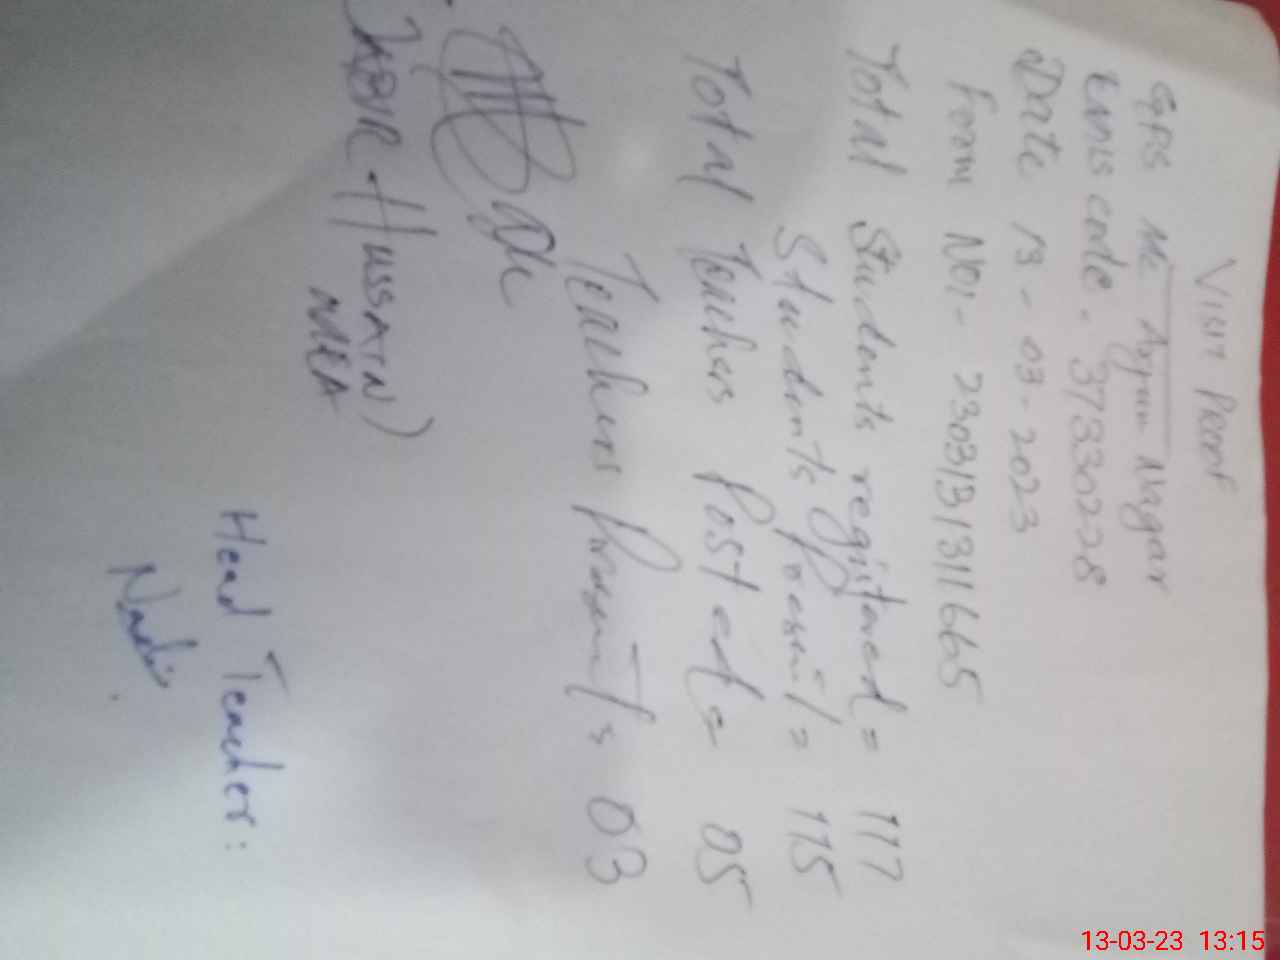 VISIT Proof
GPS MC Ayun Nagar
EMIS code. 37330228
Date 13-03-2023
Form NO1- 23031313111665
Total Students registered = 117
Students Present = 115
Total Teachers Posted = 05
Teachers Present = 03
HUSSAIN)
MEA
Head Teacher:
13-03-23 13:15